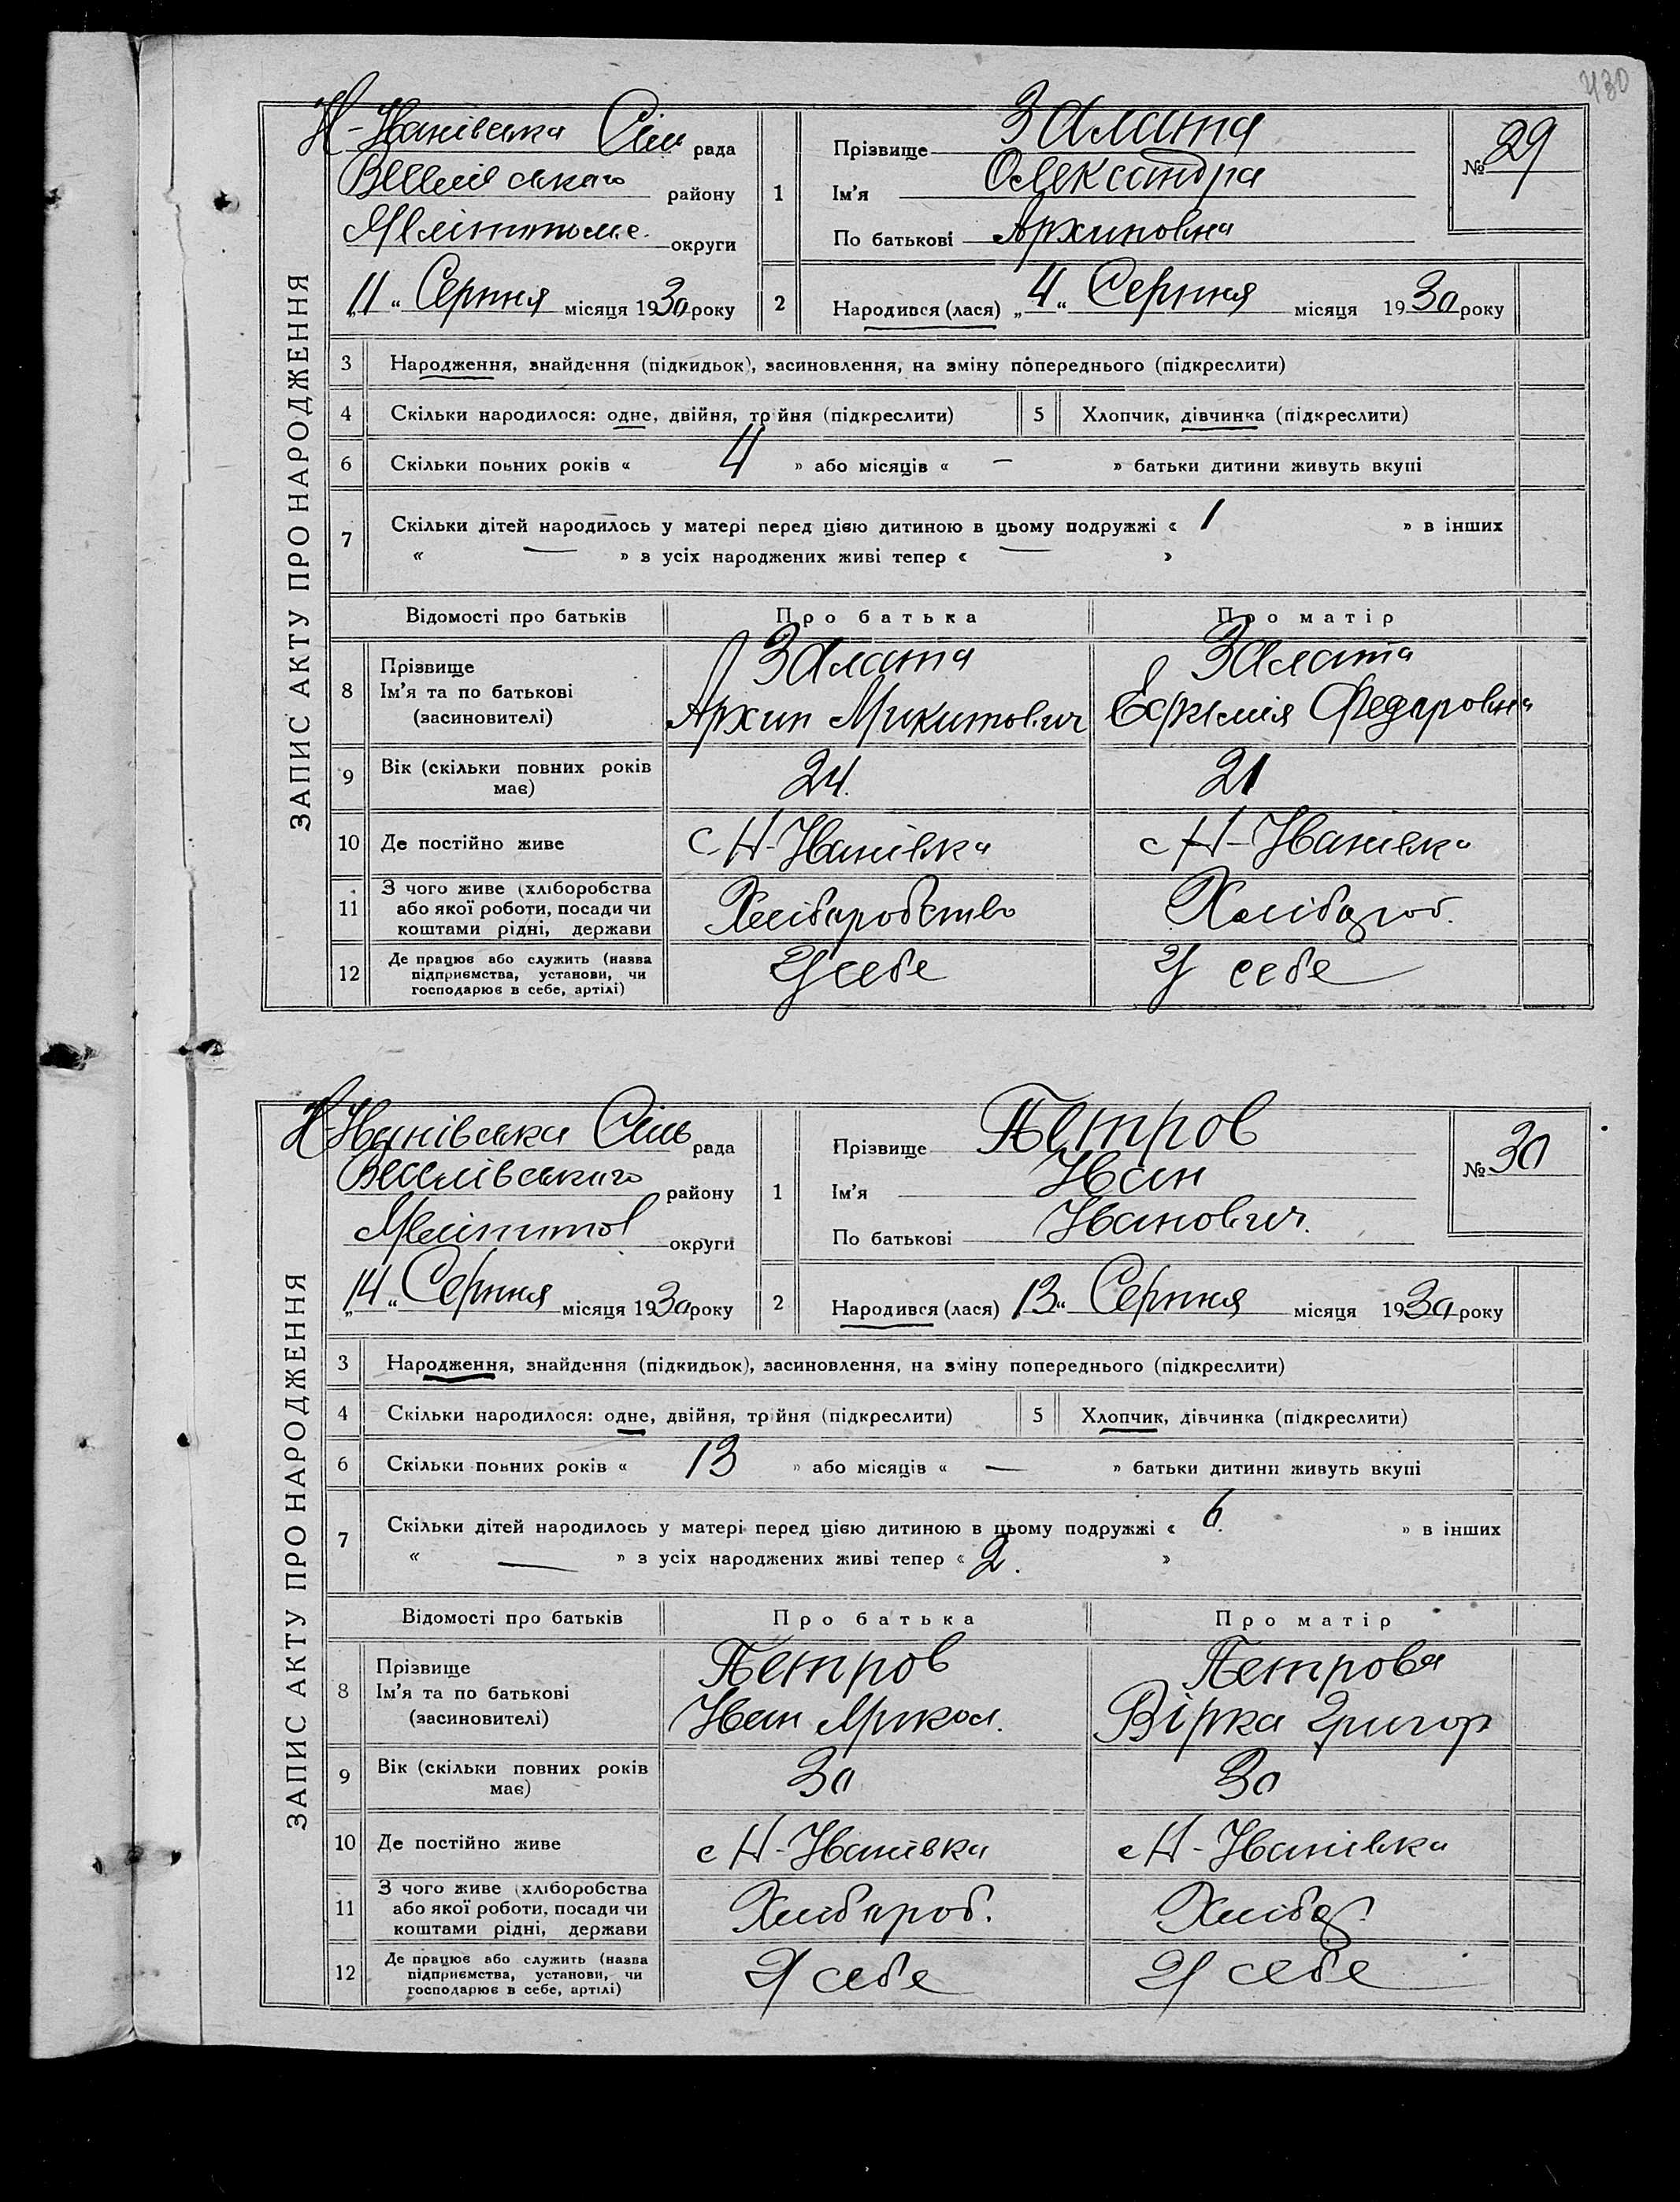 430
Н-Іванівська Сіль рада
Веселівського району
Мелітпольс. округи
„11“ Серпня місяця 1930 року
1
Прізвище Залата
Ім'я Олександра
По батькові Архиповна
№ 29
2
Народився (лася) „4“ Серпня місяця 1930 року
ЗАПИС АКТУ ПРО НАРОДЖЕННЯ
3 Народження, знайдення (підкидьок), засиновлення, на зміну попереднього (підкреслити)
4 Скільки народилося: одне, двійня, трійня (підкреслити) 5 Хлопчик, дівчинка (підкреслити)
6 Скільки повних років « 4 » або місяців « — » батьки дитини живуть вкупі
7 Скільки дітей народилось у матері перед цією дитиною в цьому подружжі « 1 » в інших
« — » з усіх народжених живі тепер « — »
Відомості про батьків Про батька Про матір
8 Прізвище Залата Залата
Ім'я та по батькові Архип Микитович Ефремія Федаровна
(засиновителі)
9 Вік (скільки повних років має) 24. 21
10 Де постійно живе с Н-Іванівка с Н-Іванівка
11 З чого живе (хліборобства Хлібаробство Хлібароб.
або якої роботи, посади чи
коштами рідні, держави
12 Де працює або служить (назва У себе У себе
підприємства, установи, чи
господарює в себе, артілі)
Н-Іванівська Сіль рада
Веселівського району
Мелітпол округи
„14“ Серпня місяця 1930 року
1
Прізвище Петров
Ім'я Іван
По батькові Іванович.
№ 30
2
Народився (лася) 13“ Серпня місяця 1930 року
ЗАПИС АКТУ ПРО НАРОДЖЕННЯ
3 Народження, знайдення (підкидьок), засиновлення, на зміну попереднього (підкреслити)
4 Скільки народилося: одне, двійня, трійня (підкреслити) 5 Хлопчик, дівчинка (підкреслити)
6 Скільки повних років « 13 » або місяців « — » батьки дитини живуть вкупі
7 Скільки дітей народилось у матері перед цією дитиною в цьому подружжі « 6. » в інших
« — » з усіх народжених живі тепер « 2. »
Відомості про батьків Про батька Про матір
8 Прізвище Петров Петрова
Ім'я та по батькові Іван Микол. Вірка Григор
(засиновителі)
9 Вік (скільки повних років має) 30 30
10 Де постійно живе с Н-Іванівка с Н-Іванівка
11 З чого живе (хліборобства Хлібароб. Хліба
або якої роботи, посади чи
коштами рідні, держави
12 Де працює або служить (назва У себе У себе
підприємства, установи, чи
господарює в себе, артілі)